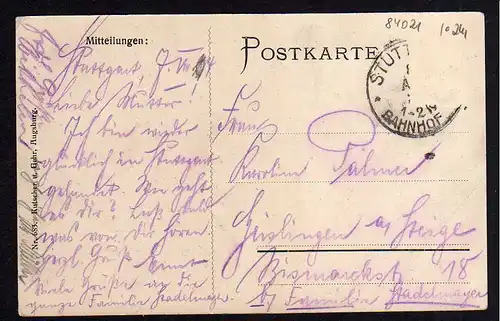 84021 10.24
Mitteilungen:
POSTKARTE
STUTT
1-2N
BAHNHOF
Stuttgart, 7.
Liebe Mutter!
Ich bin wieder
glücklich in Stuttgart
gelandet. Wie geht
es dir? Laß bald
was von Dir hören.
Herzl. Grüße
Viele Grüße an die
ganze Familie Stadelmayer.
Frau
Karoline Palmer
Geislingen a/ Steige
Bismarckst. 18
b/ Familie Stadelmayer
Rutscher u. Gehr, Augsburg.